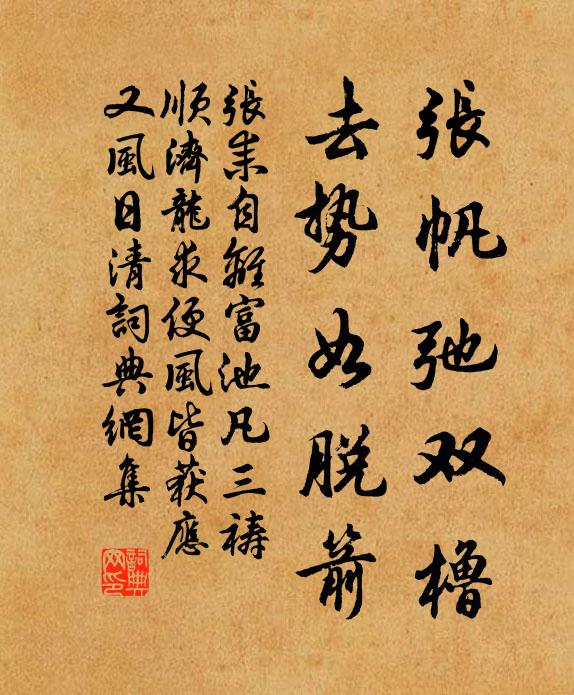 張帆弛双櫓
去势如脱箭
張耒自離富池凡三禱
順濟龍求便風皆获應
又風日清詞典網集
詞典网印